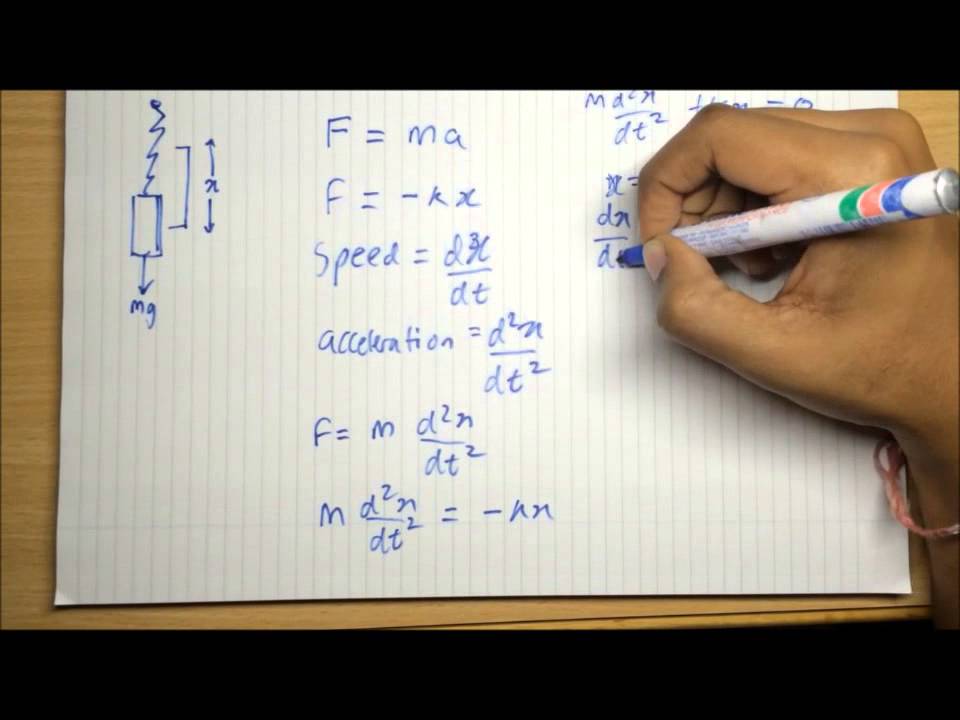 x
mg
F = ma
F = -kx
Speed = dx/dt
acceleration = d²x/dt²
F = m d²x/dt²
m d²x/dt² = -kx
m d²x/dt² + kx = 0
x =
dx